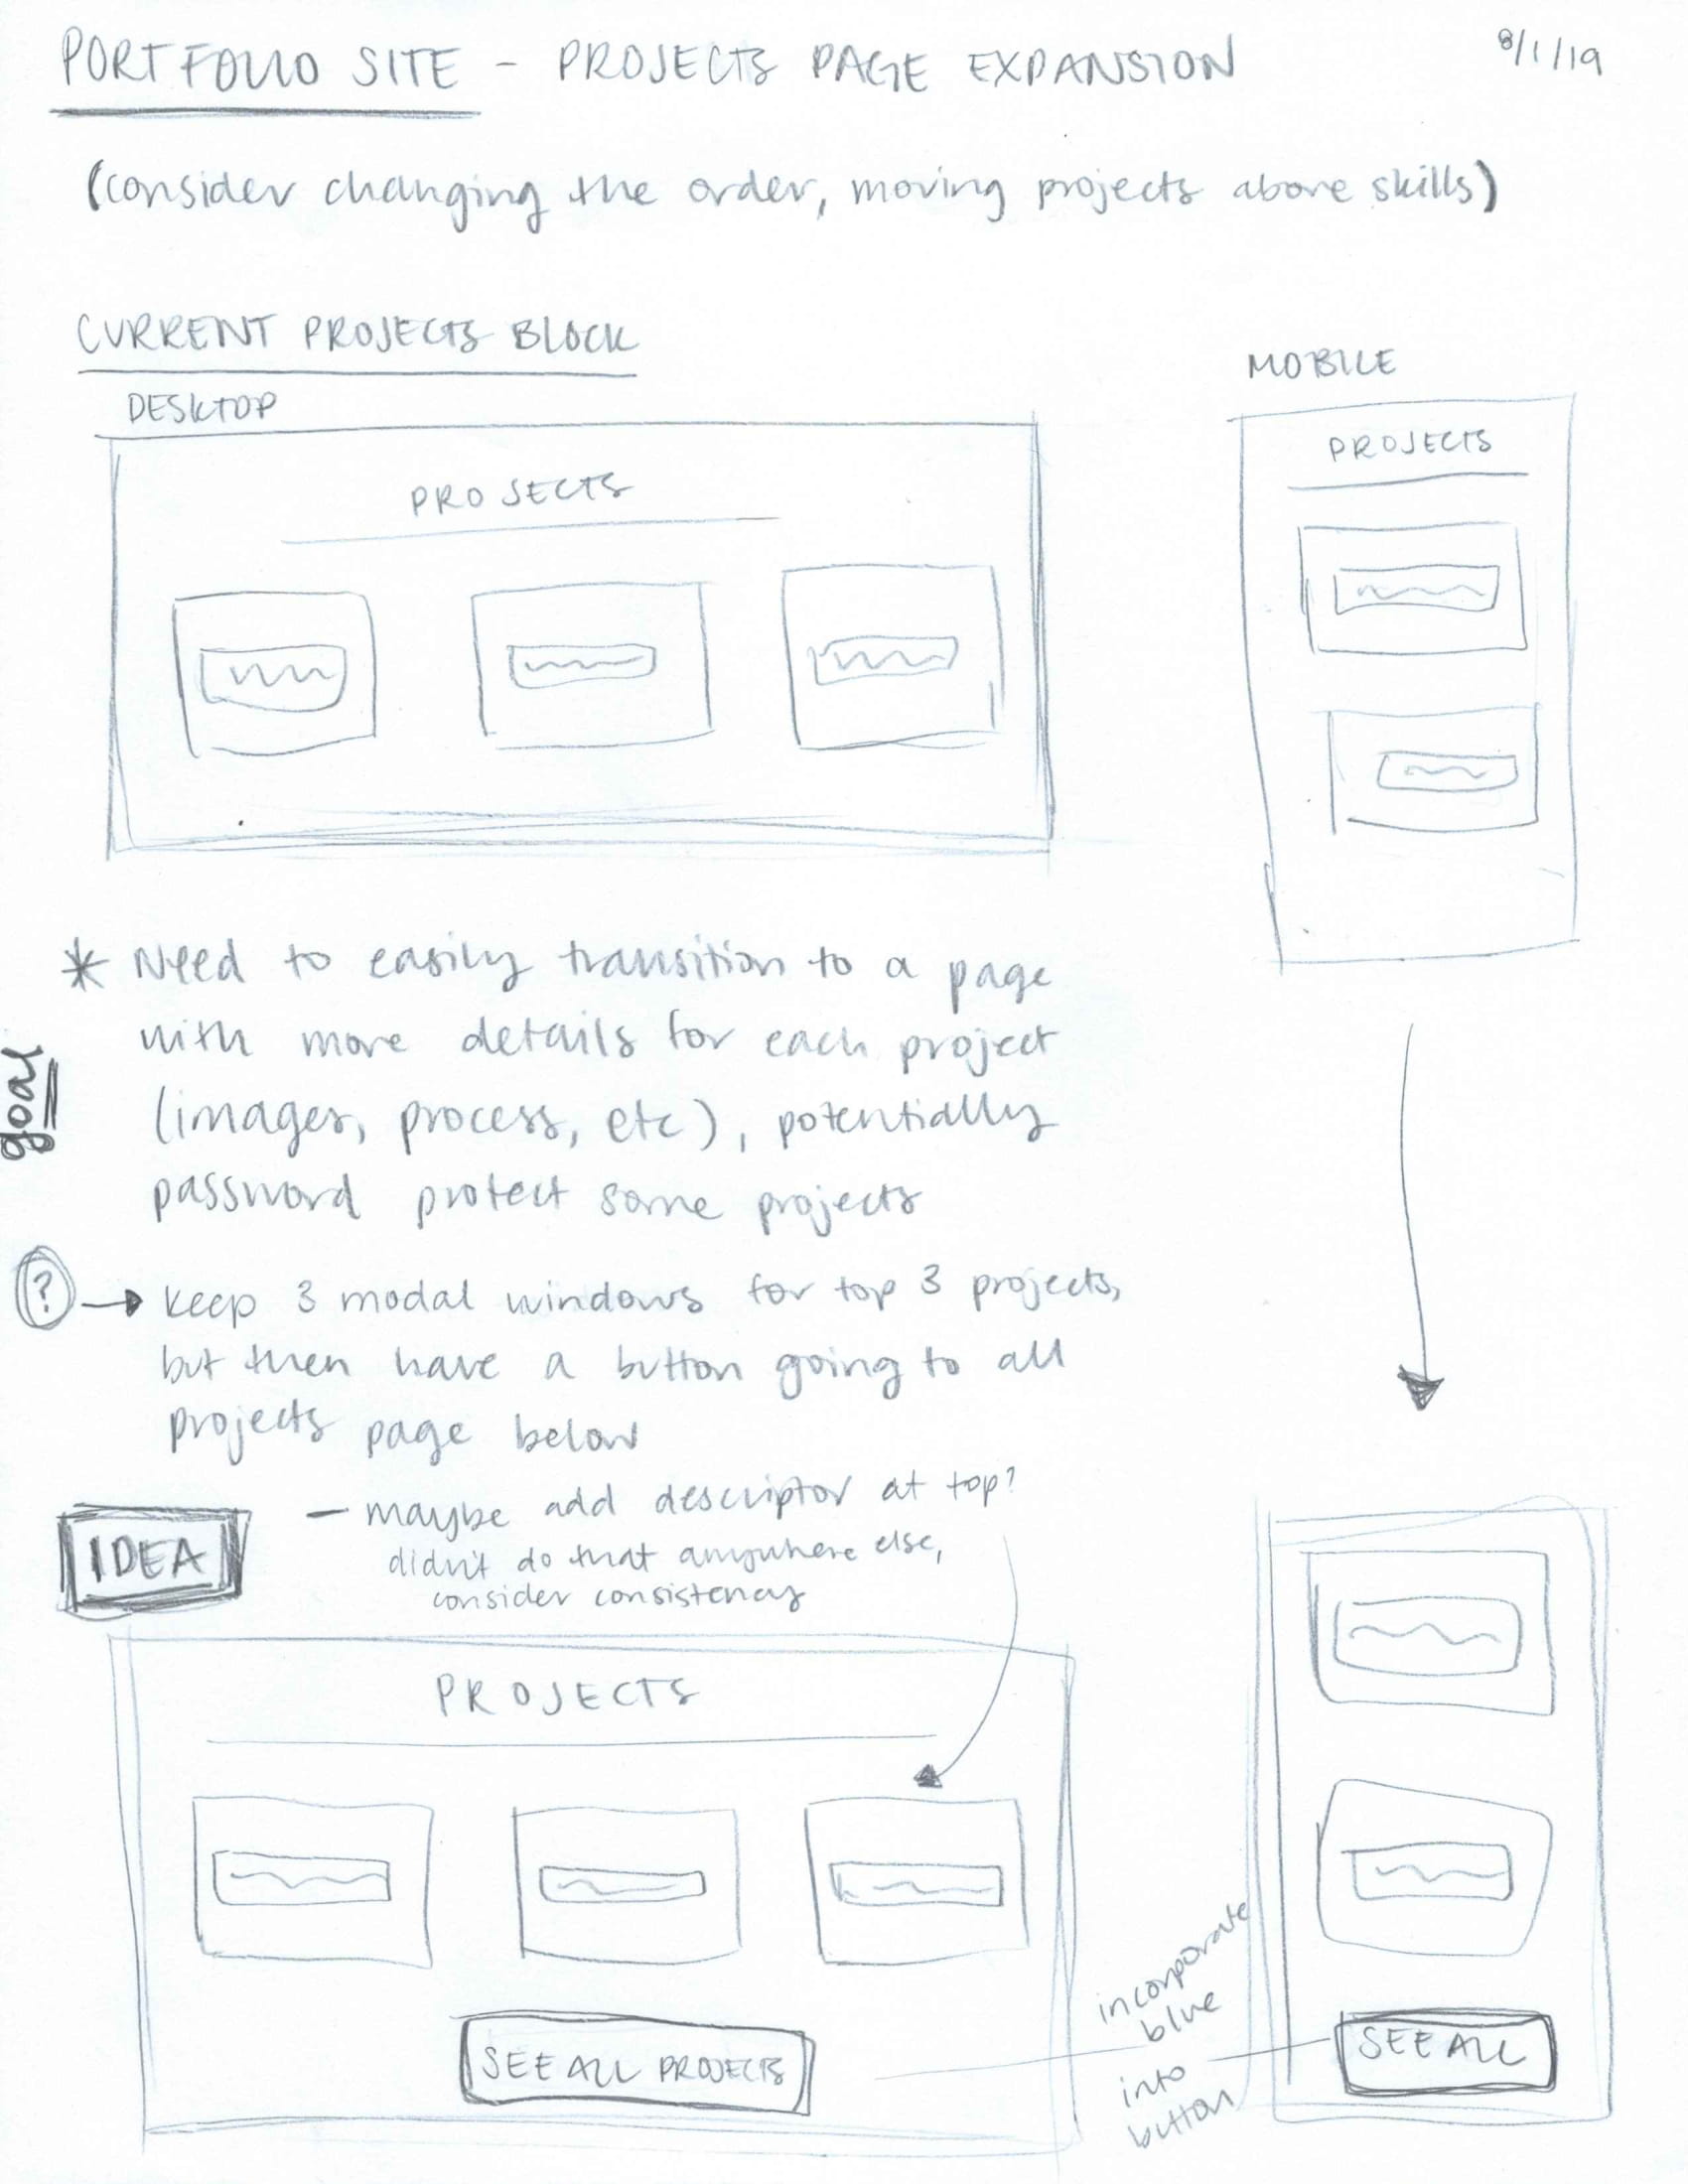 PORTFOLIO SITE - PROJECTS PAGE EXPANSION
8/1/19
(consider changing the order, moving projects above skills)
CURRENT PROJECTS BLOCK
DESKTOP
PROJECTS
MOBILE
PROJECTS
goal
* Need to easily transition to a page
with more details for each project
(images, process, etc), potentially
password protect some projects
? → keep 3 modal windows for top 3 projects,
but then have a button going to all
projects page below
IDEA
— maybe add descriptor at top?
didn't do that anywhere else,
consider consistency
PROJECTS
SEE ALL PROJECTS
incorporate
blue
into
button
SEE ALL